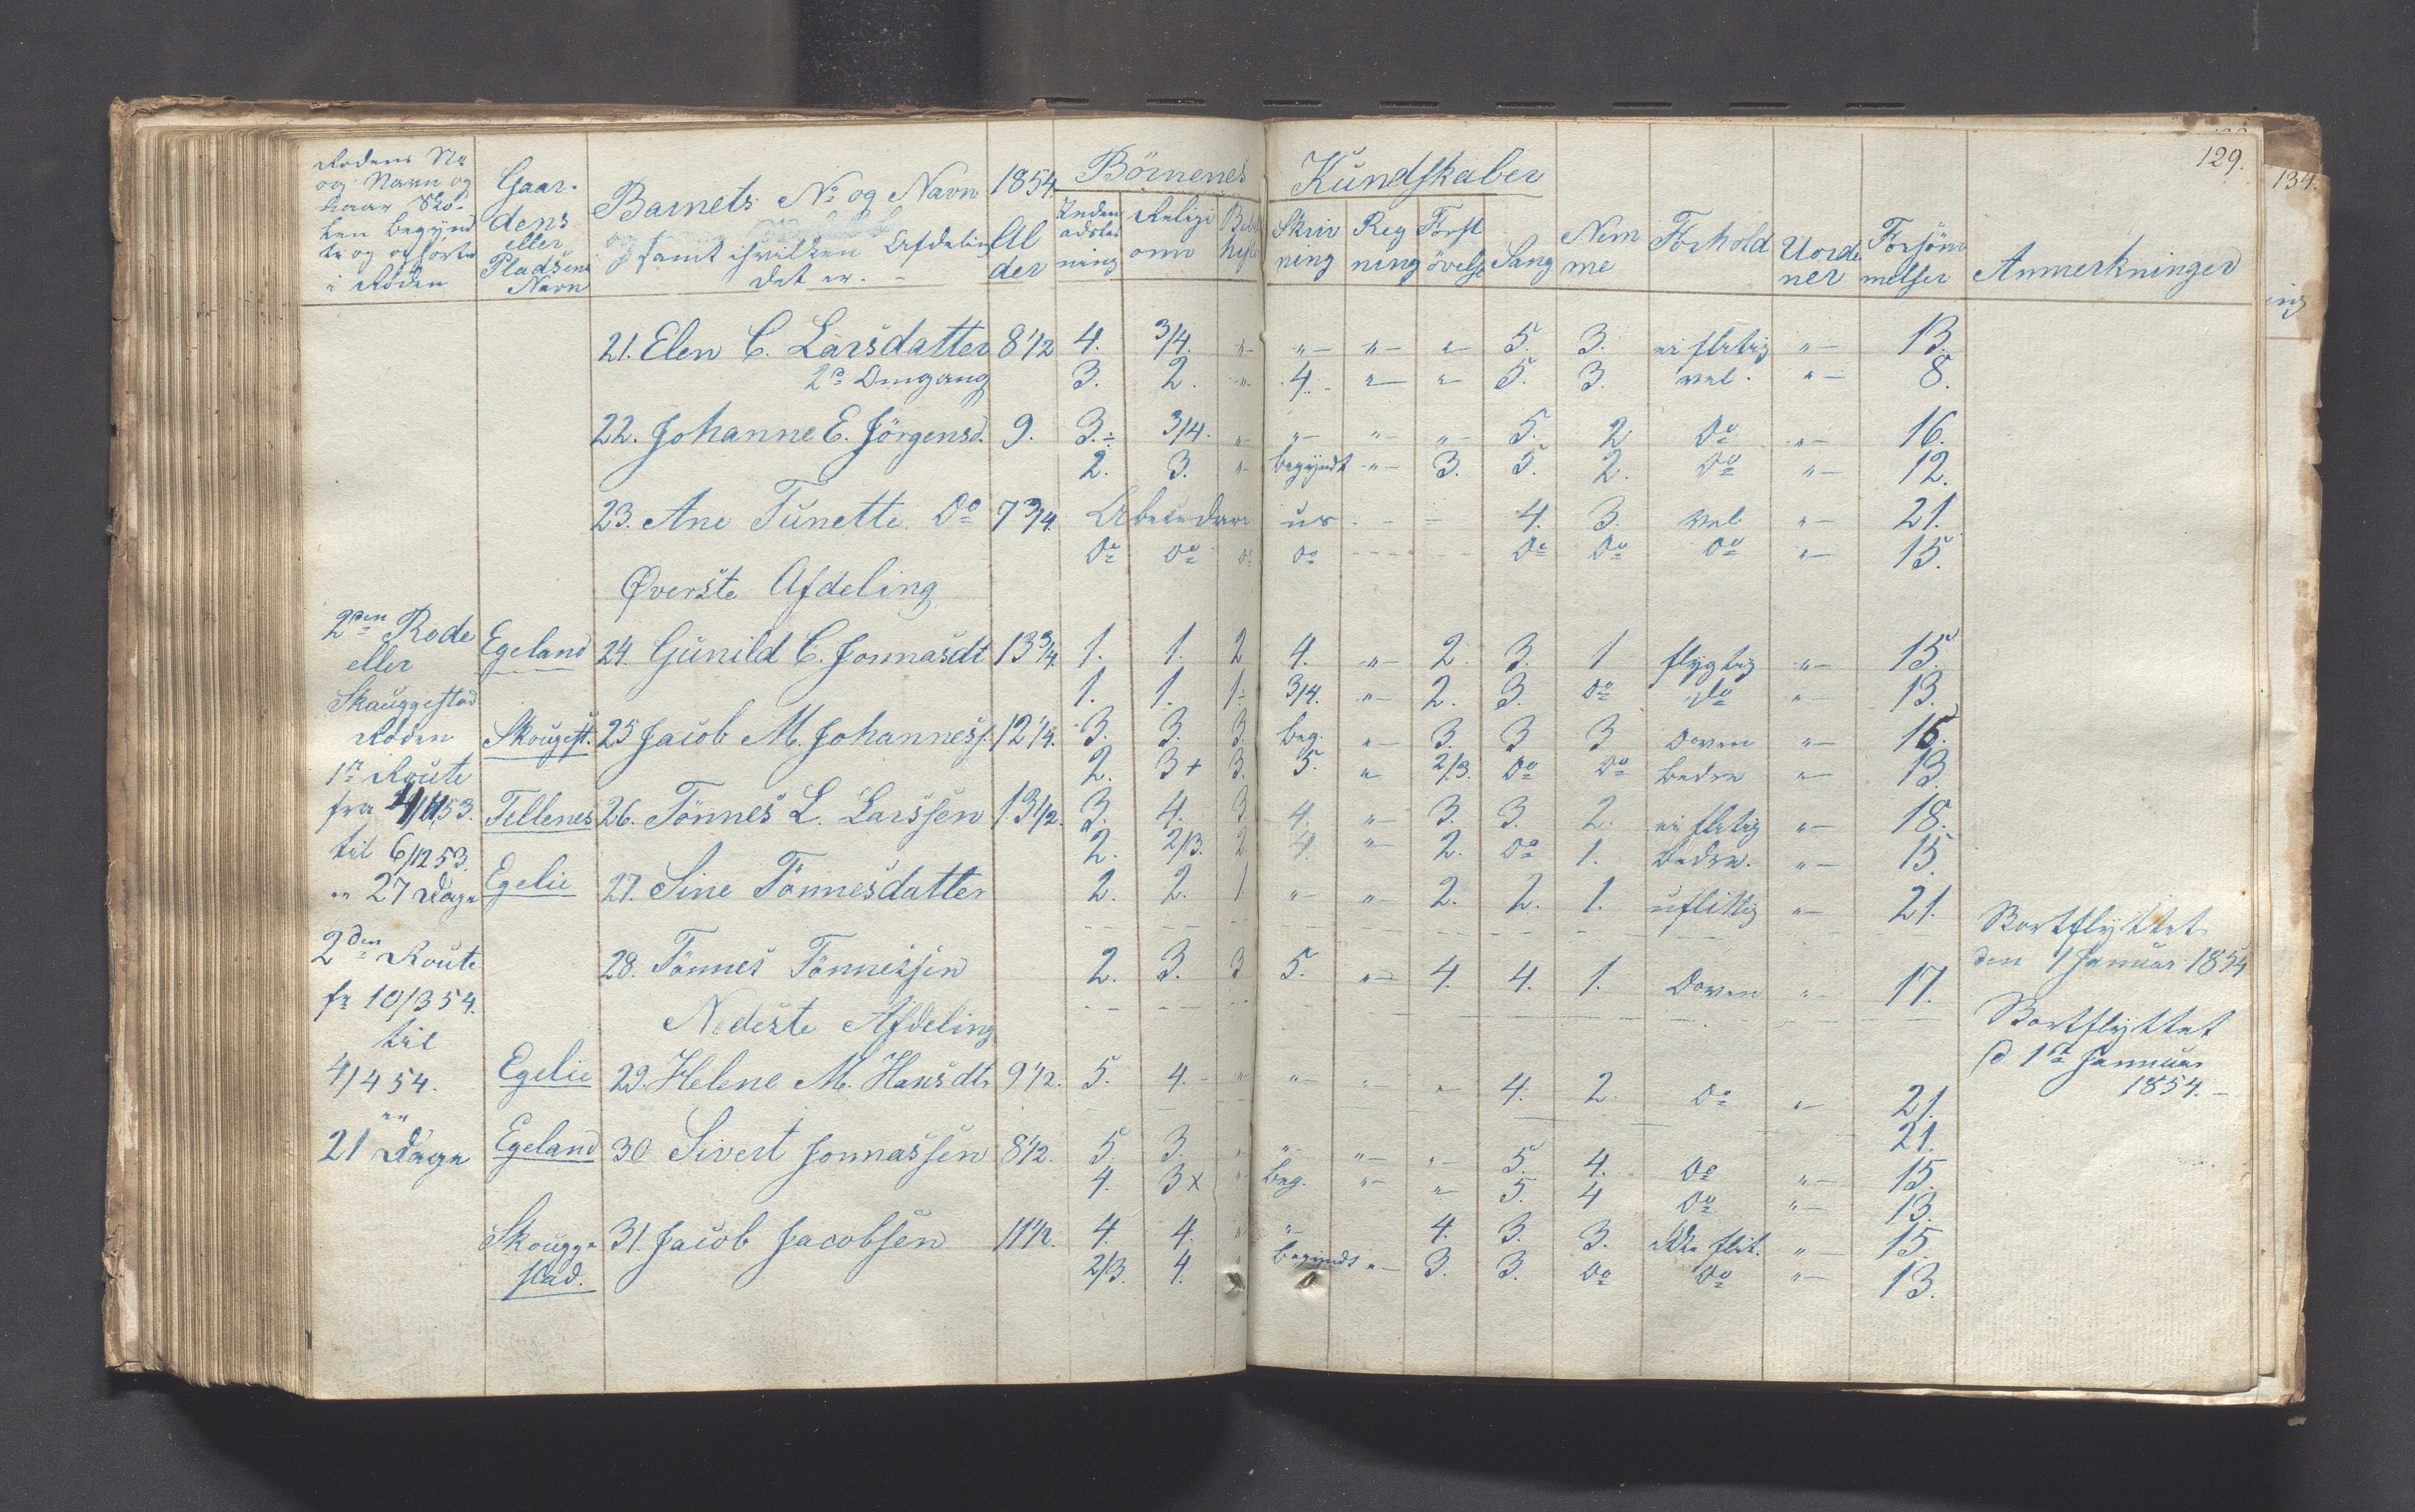 129.
134.
Rodens No
og Navn og
naar Sko-
len begynd
te og ophörte
i Roden
Gaar-
dens
eller
Pladsens
Navn
Barnets No og Navn
samt hvilken Afdeling
det er. -
1854.
Al
der
Börnenes Kundskaber
Inden
adslæs
ning
Religi
onn
Skriv
ning
Reg
ning
Forst
övelse
Sang
Nem
me
Forhold
Uorde
ner
Forsöm
melser
Anmerkninger
21. Elen C. Larsdatter 8 1/2 4. 3/4. " " " " 5. 3. ei flitig " 13.
2n Omgang 3. 2. " 4. " " 5. 3. vel. " 8.
22. Johanne E. Jörgensd. 9. 3.÷ 3/4. " " " " 5. 2 Do " 16.
2. 3. " begyndt " 3. 5. 2. Do " 12.
23. Ane Tunette Do 7 3/4. Abecedari us - - - 4. 3. vel " 21.
Do Do Do Do - - - - Do Do Do " 15.
Øverste Afdeling
2den Rode
eller
Skauggestad
Roden
1te Route
fra 4/11 53.
til 6/12 53.
" 27 Dage
2den Route
fr 10/3 54.
til
4/4 54.
""
21 Dage
Egeland 24. Gunild C. Jonnasdt 13 3/4. 1. 1. 2 4. " 2. 3. 1 flygtig " 15.
1. 1. 1÷ 3/4. " 2. 3. Do Do " 13.
Skougest. 25 Jacob M. Johanness. 12 1/4. 3. 3. 3 Beg. " 3. 3 3 Doven " 15.
2. 3+ 3. 5. " 2/3. Do Do bedre " 13
Tellenes 26. Tönnes L. Larssen 13 1/2. 3. 4. 3 4. " 3. 3. 2. ei flitig " 18.
2. 2/3. 2 4. " 2. Do 1. bedre. " 15.
Egelie 27. Sine Tönnesdatter 2. 2. 1 " " 2. 2. 1. uflittig " 21. Bortflyttet
den 1 Januar 1854
28. Tönnes Tönnessen 2. 3. 3 5. " 4. 4. 1. Doven " 17. Bortflyttet
d 1ste Januar
1854. -
Nederste Afdeling
Egelie 29. Helene M. Hansdtr 9 1/2. 5. 4. - " " " " 4. 2. Do " 21.
21.
Egeland 30 Sivert Jonnassen 8 1/2. 5. 3. " " " " 5. 4. Do " 15.
4. 3x " Beg. " " 5. 4 Do " 13.
Skougge
stad. 31. Jacob Jacobsen 11 1/2. 4. 4. " " 4. 3. 3. ikke flit. " 15.
2/3. 4. " begyndt " 3. 3. Do Do " 13.